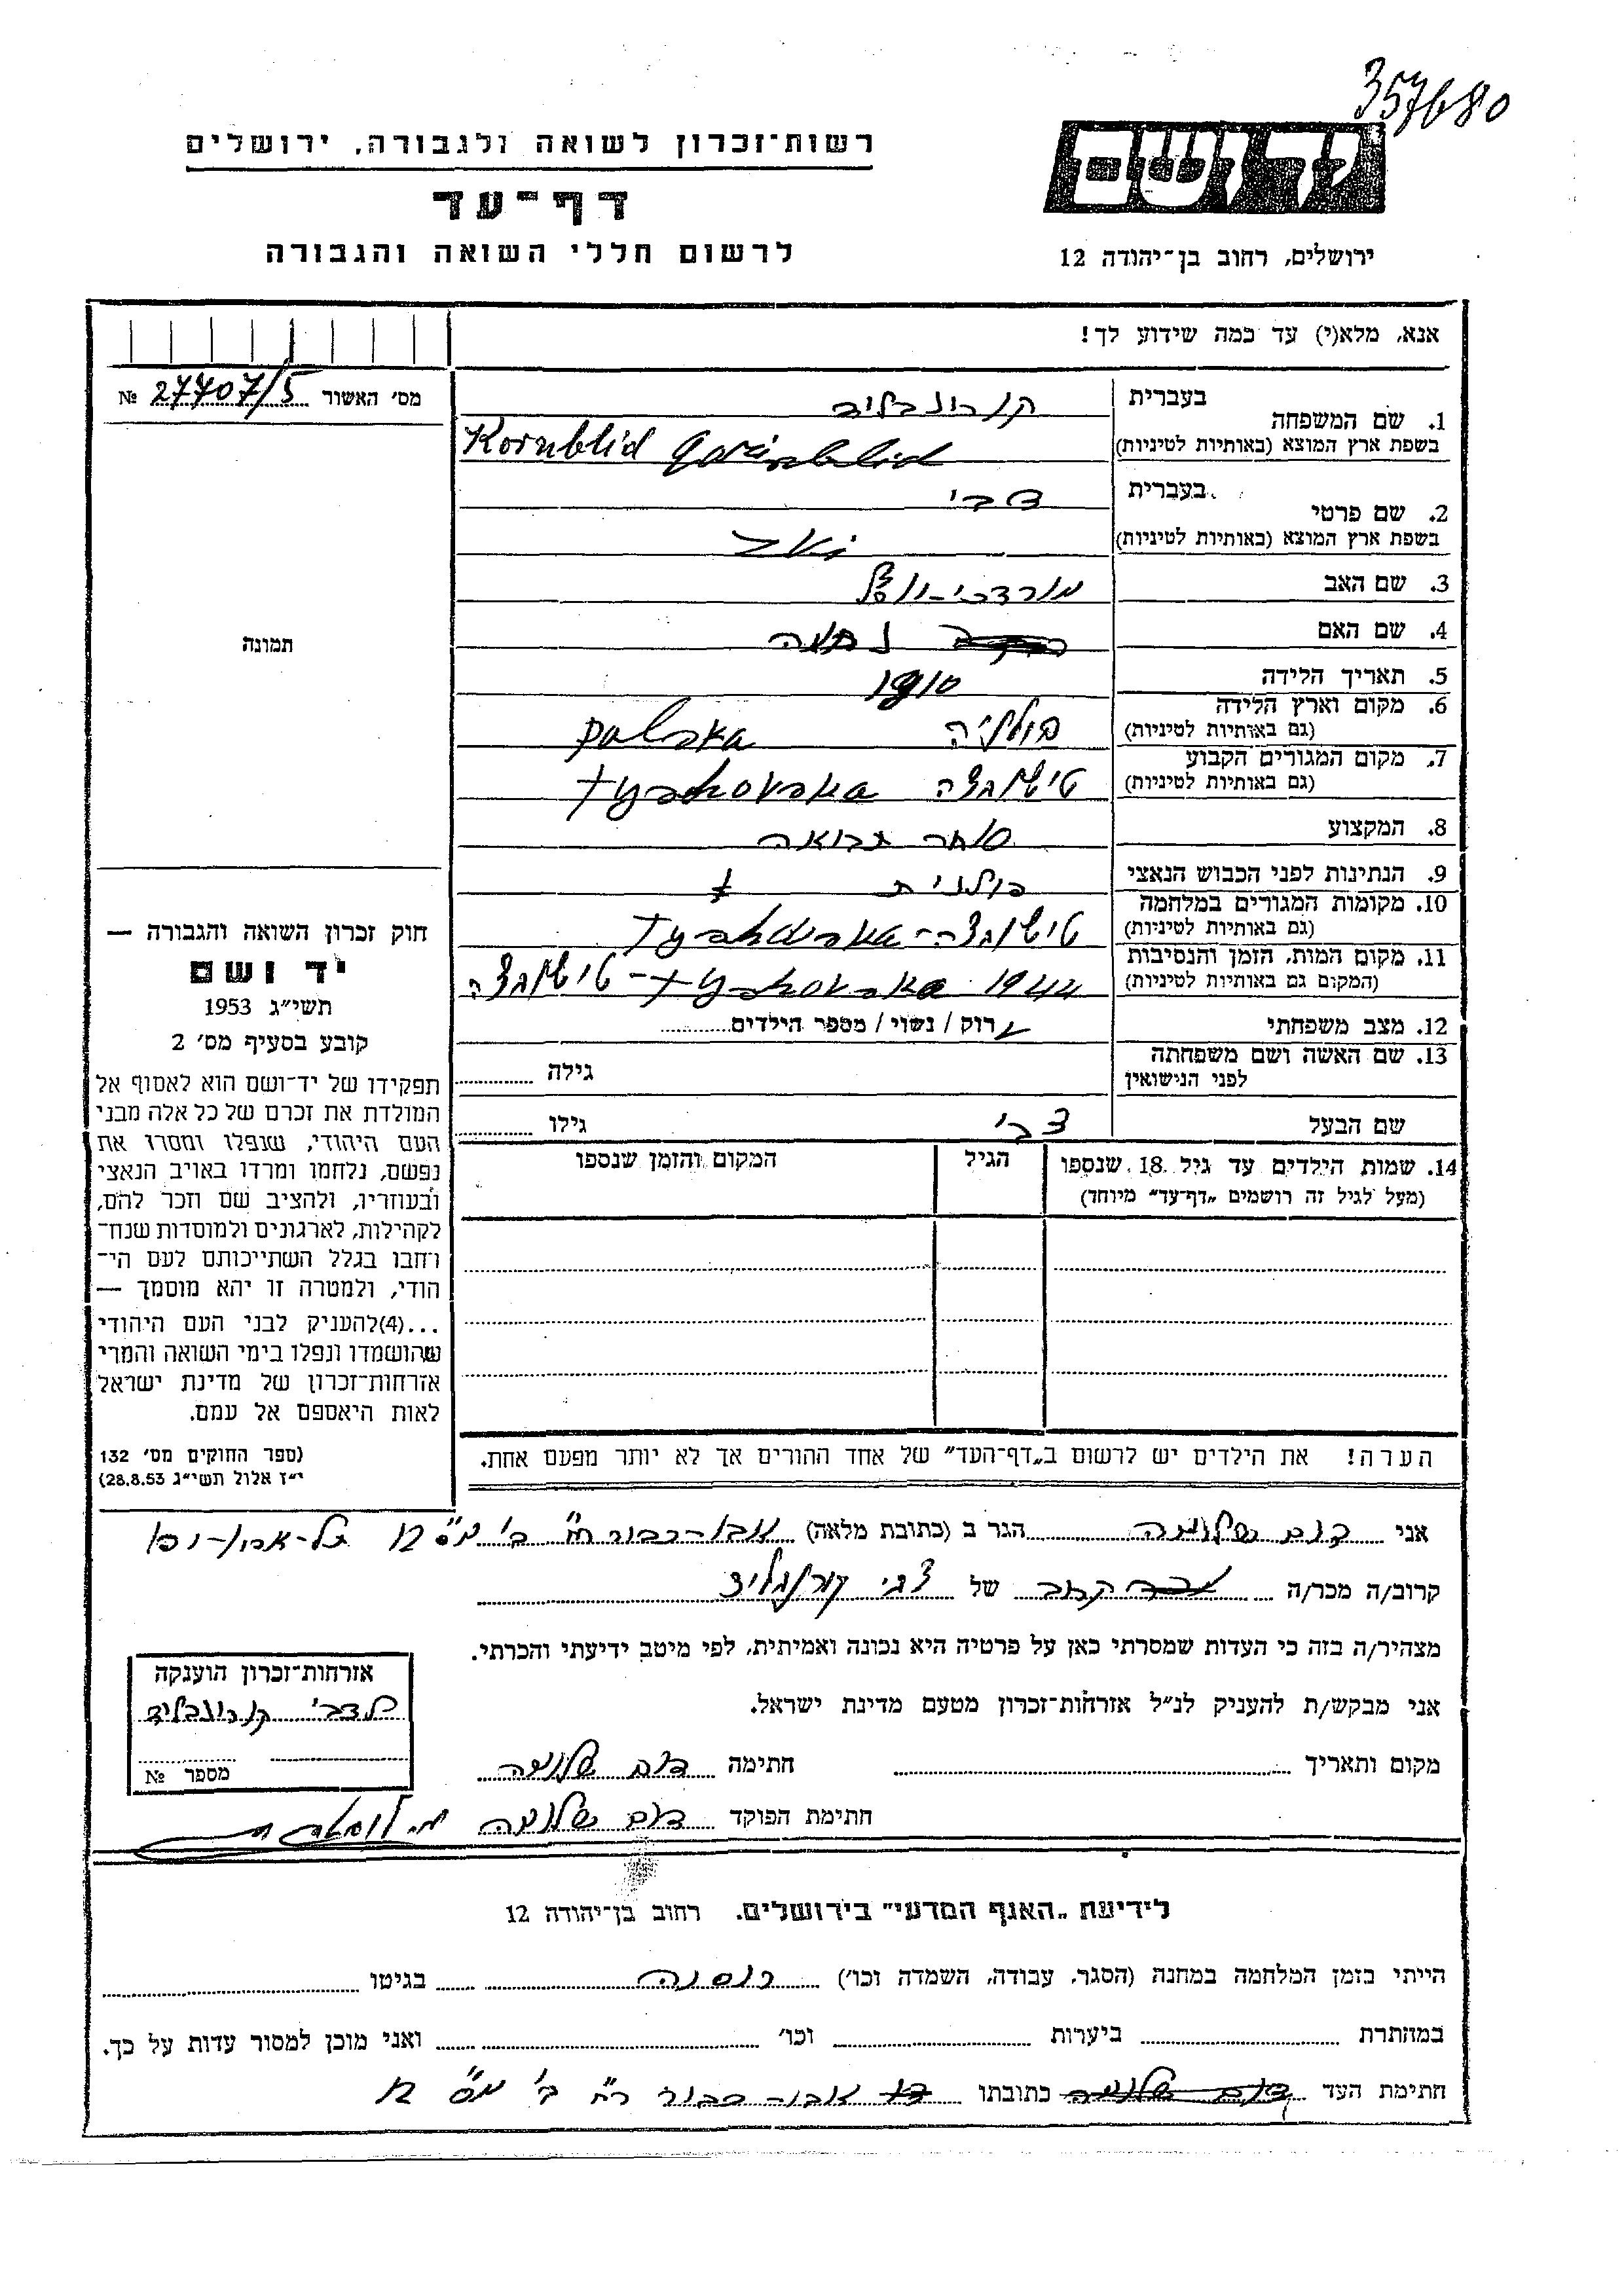 357680
רשות־זכרון לשואה ולגבורה, ירושלים
דף־עד
לרשום חללי השואה והגבורה
יד ושם
ירושלים, רחוב בן־יהודה 12
אנא, מלא(י) עד כמה שידוע לך!
מס׳ האשור 27707/5 №
1. שם המשפחה
בעברית
בשפת ארץ המוצא (באותיות לטיניות) Kornblid
2. שם פרטי
בעברית צבי
בשפת ארץ המוצא (באותיות לטיניות)
3. שם האב מורדכי-
4. שם האם נחמה
5. תאריך הלידה 1910
6. מקום וארץ הלידה
(גם באותיות לטיניות) פולניה polska
7. מקום המגורים הקבוע
(גם באותיות לטיניות)
8. המקצוע סוחר תבואה
9. הנתינות לפני הכבוש הנאצי פולנית
10. מקומות המגורים במלחמה
(גם באותיות לטיניות)
11. מקום המות, הזמן והנסיבות
(המקום גם באותיות לטיניות) 1942
12. מצב משפחתי רוק / נשוי / מספר הילדים
13. שם האשה ושם משפחתה
לפני הנישואין גילה
שם הבעל צבי גילו
14. שמות הילדים עד גיל 18 שנספו
(מעל לגיל זה רושמים „דף־עד״ מיוחד)
הגיל
המקום והזמן שנספו
הערה! את הילדים יש לרשום ב„דף־העד״ של אחד ההורים אך לא יותר מפעם אחת.
תמונה
חוק זכרון השואה והגבורה —
יד ושם
תשי״ג 1953
קובע בסעיף מס׳ 2
תפקידו של יד־ושם הוא לאסוף אל
המולדת את זכרם של כל אלה מבני
העם היהודי, שנפלו ומסרו את
נפשם, נלחמו ומרדו באויב הנאצי
ובעוזריו, ולהציב שם וזכר להם,
לקהילות, לארגונים ולמוסדות שנח־
רחבו בגלל השתייכותם לעם הי־
הודי, ולמטרה זו יהא מוסמך —
...(4)להעניק לבני העם היהודי
שהושמדו ונפלו בימי השואה והמרי
אזרחות־זכרון של מדינת ישראל
לאות היאספם אל עמם.
(ספר החוקים מס׳ 132
י״ז אלול תשי״ג 28.8.53)
אני שלומה הגר ב (כתובת מלאה) אבו-כבור רח׳ ב׳ מס׳ 12 תל-אביב-יפו
קרוב/ה מכר/ה קרוב של צבי קורנבליד
מצהיר/ה בזה כי העדות שמסרתי כאן על פרטיה היא נכונה ואמיתית, לפי מיטב ידיעתי והכרתי.
אני מבקש/ת להעניק לנ״ל אזרחות־זכרון מטעם מדינת ישראל.
מקום ותאריך חתימה שלומה
חתימת הפוקד שלומה
אזרחות־זכרון הוענקה
לצבי קורנבליד
מספר №
לידיעת „האגף המדעי״ בירושלים, רחוב בן־יהודה 12
הייתי בזמן המלחמה במחנה (הסגר, עבודה, השמדה וכו׳) רוסיה בגיטו
במחתרת ביערות וכו׳ ואני מוכן למסור עדות על כך.
חתימת העד שלומה כתובתו אבו-כבור רח׳ ב׳ מס׳ 12